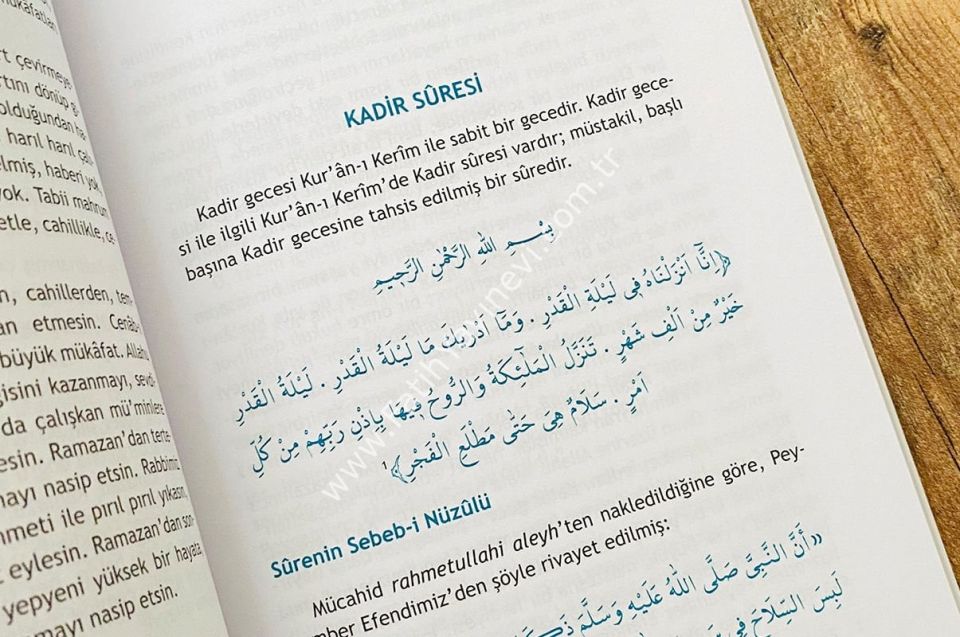 mükâfatları
rt çevirmeye
rtını dönüp gi-
olduğundan ha-
harıl harıl
elmiş, haberi yok,
yok. Tabii mahrum
etle, cahillikle,
n, cahillerden, tem-
an etmesin. Cenâb-ı
büyük mükâfat. Allahu
gisini kazanmayı,
da çalışkan mü'minlere
esin. Ramazan'dan
mayı nasip etsin. Rabbimiz
hmeti ile pırıl pırıl yıkasın,
t eylesin. Ramazan'dan son-
yepyeni yüksek bir hayata
mayı nasip etsin.
KADİR SÛRESİ
Kadir gecesi Kur'ân-ı Kerîm ile sabit bir gecedir. Kadir gece-
si ile ilgili Kur'ân-ı Kerîm'de Kadir sûresi vardır; müstakil, başlı
başına Kadir gecesine tahsis edilmiş bir sûredir.
بِسْمِ اللهِ الرَّحْمٰنِ الرَّحِيمِ
﴿اِنَّٓا اَنْزَلْنَاهُ فِي لَيْلَةِ الْقَدْرِ . وَمَٓا اَدْرٰيكَ مَا لَيْلَةُ الْقَدْرِ . لَيْلَةُ الْقَدْرِ
خَيْرٌ مِنْ اَلْفِ شَهْرٍ . تَنَزَّلُ الْمَلٰٓئِكَةُ وَالرُّوحُ فِيهَا بِاِذْنِ رَبِّهِمْ مِنْ كُلِّ
اَمْرٍ . سَلَامٌ هِيَ حَتّٰى مَطْلَعِ الْفَجْرِ﴾¹
Sûrenin Sebeb-i Nüzûlü
Mücahid rahmetullahi aleyh'ten nakledildiğine göre, Pey-
mber Efendimiz'den şöyle rivayet edilmiş:
«أَنَّ النَّبِيَّ صَلَّى اللهُ عَلَيْهِ وَسَلَّمَ
لَبِسَ السِّلَاحَ فِي
www.fatihhunevi.com.tr